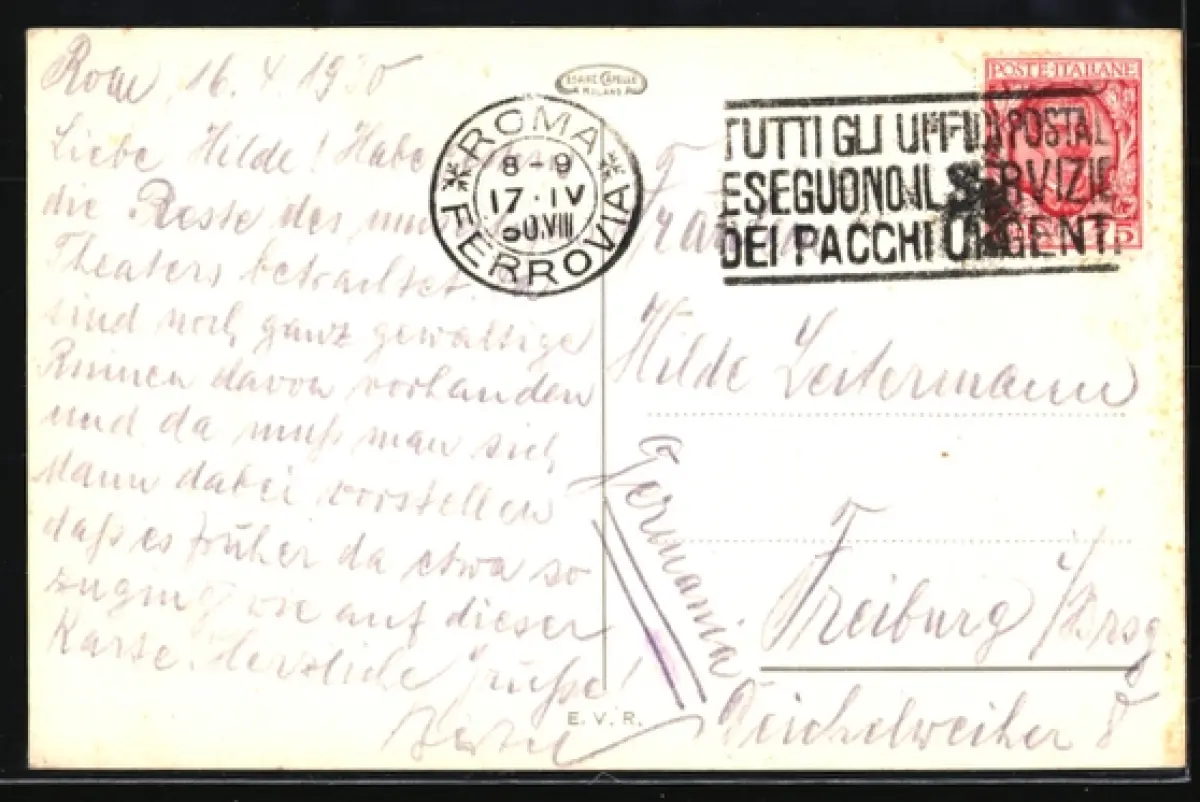 Rom, 16. 4. 1930
Liebe Hilde! Habe
die Reste des
Theaters betrachtet.
sind noch ganz gewaltige
Ruinen davon vorhanden
und da muß man sich
dann dabei vorstellen
daß es früher da etwa so
zuging wie auf dieser
Karte. Herzliche Grüße!
CESARE CAPELLO
MILANO
ROMA
8-9
17·IV
30.VIII
FERROVIA
TUTTI GLI UFFICI POSTALI
ESEGUONO IL SERVIZIO
DEI PACCHI URGENTI
POSTE·ITALIANE
75
Hilde Leitermann
Germania
Freiburg i/Brsg
Deichelweiher 8
E. V. R.